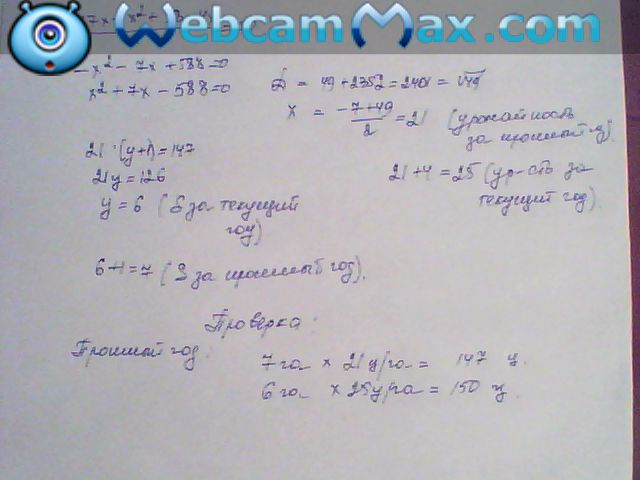 WebcamMax.com
- x² - 7x + 588 = 0
x² + 7x - 588 = 0
D = 49 + 2352 = 2401 = √49
x = (-7+49)/2 = 21 (урожайность
за прошлый г).
21 · (y+1) = 147
21y = 126
21 + 4 = 25 (ур-сть за
текущий год).
y = 6 (S за текущий
год)
6+1=7 (S за прошлый год).
Проверка:
Прошлый год:
7 га × 21 ц/га = 147 ц.
6 га × 25 ц/га = 150 ц.